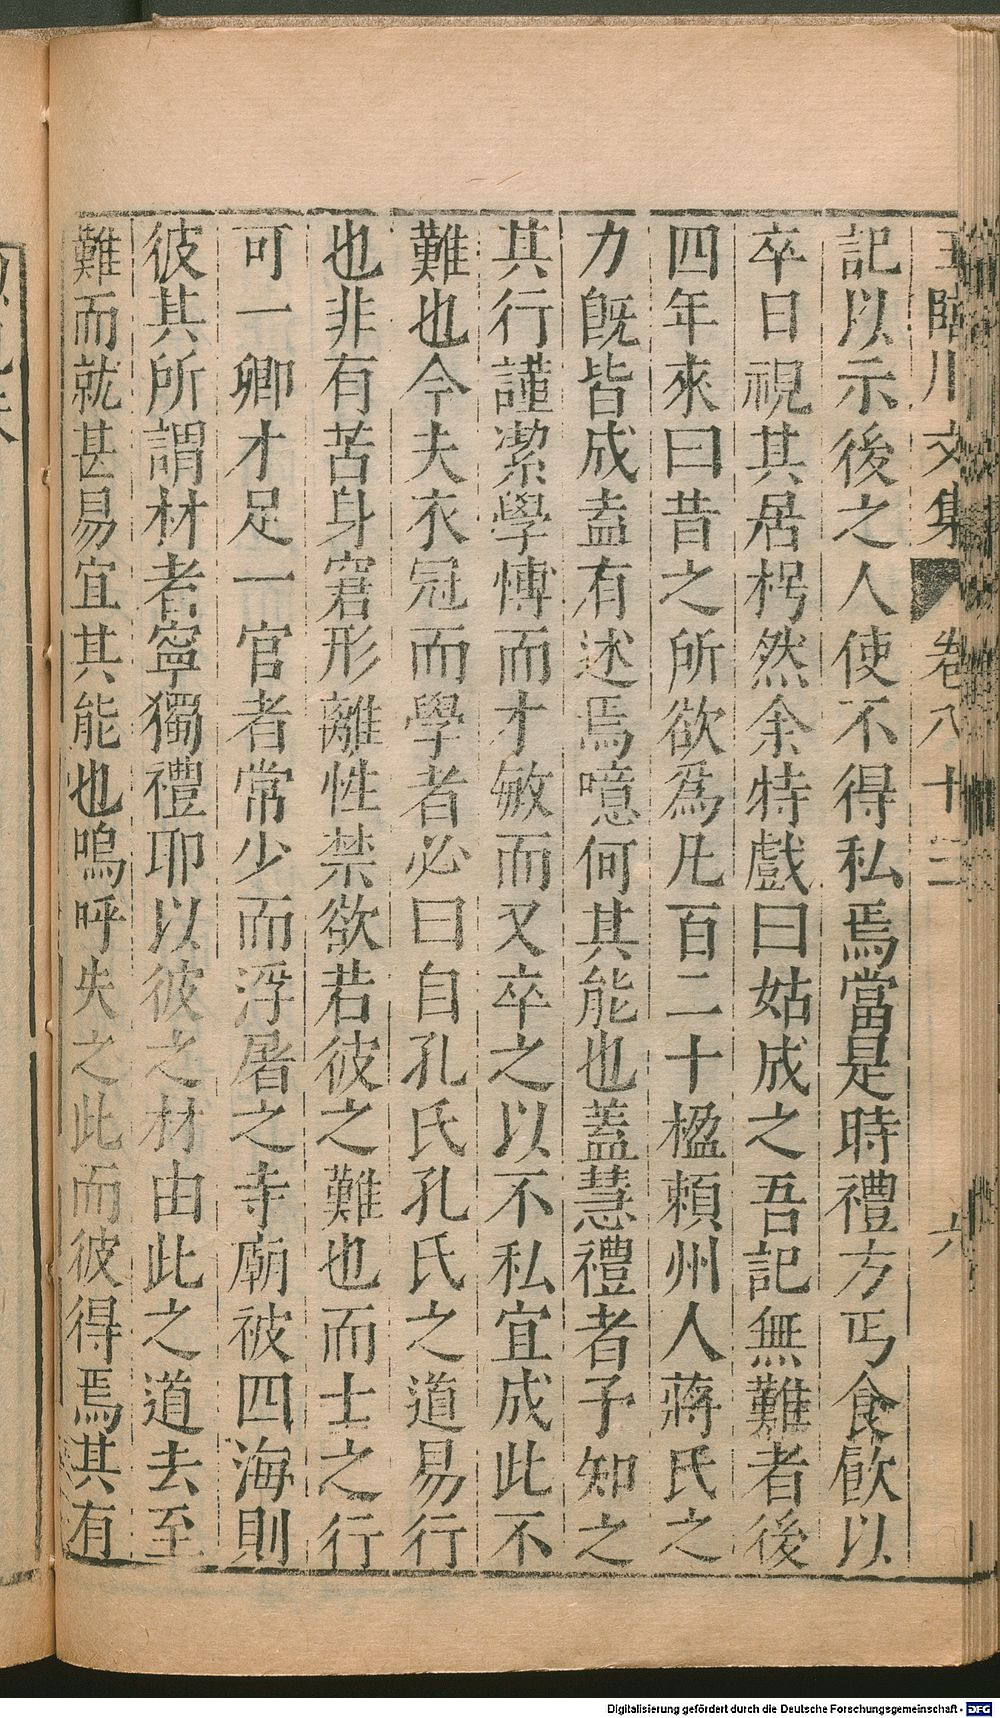 王臨川文集 卷八十三 六
記以示後之人使不得私焉當是時禮方丐食飮以
卒日視其居枵然余特戲曰姑成之吾記無難者後
四年來曰昔之所欲爲凡百二十楹賴州人蔣氏之
力旣皆成盍有述焉噫何其能也蓋慧禮者予知之
其行謹潔學博而才敏而又卒之以不私宜成此不
難也今夫衣冠而學者必曰自孔氏孔氏之道易行
也非有苦身窘形離性禁欲若彼之難也而士之行
可一卿才足一官者常少而浮屠之寺廟被四海則
彼其所謂材者寧獨禮耶以彼之材由此之道去至
難而就甚易宜其能也嗚呼失之此而彼得焉其有
Digitalisierung gefördert durch die Deutsche Forschungsgemeinschaft - DFG